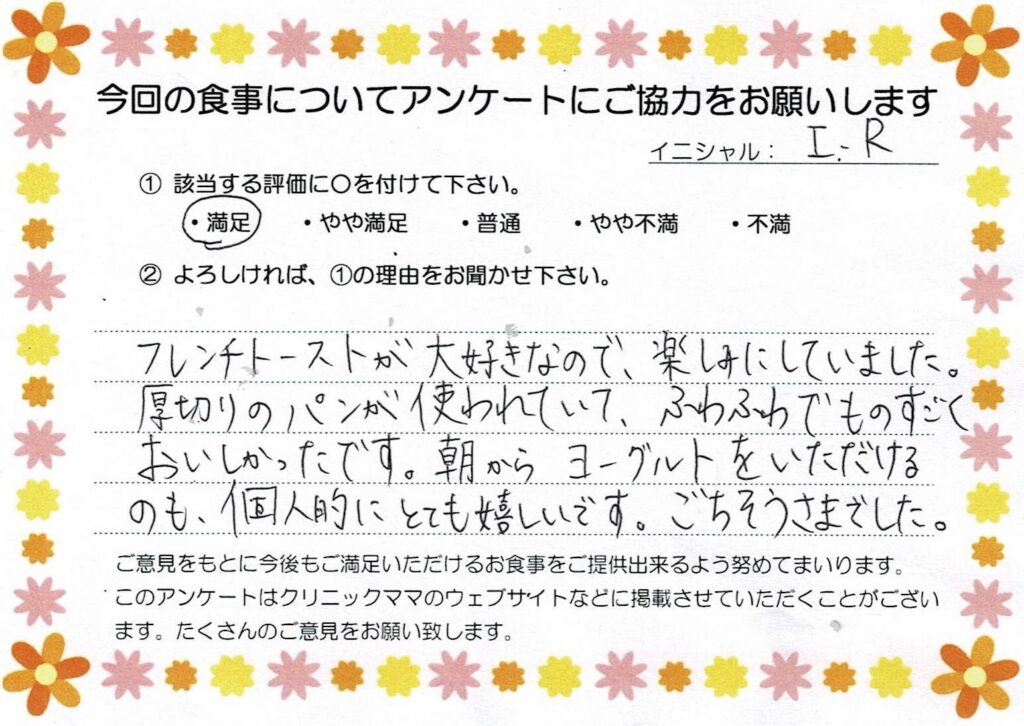 今回の食事についてアンケートにご協力をお願いします
イニシャル： I.R
① 該当する評価に○を付けて下さい。
・満足 ・やや満足 ・普通 ・やや不満 ・不満
② よろしければ、①の理由をお聞かせ下さい。
フレンチトーストが大好きなので、楽しみにしていました。
厚切りのパンが使われていて、ふわふわでものすごく
おいしかったです。朝からヨーグルトをいただける
のも、個人的にとても嬉しいです。ごちそうさまでした。
ご意見をもとに今後もご満足いただけるお食事をご提供出来るよう努めてまいります。
このアンケートはクリニックママのウェブサイトなどに掲載させていただくことがござい
ます。たくさんのご意見をお願い致します。